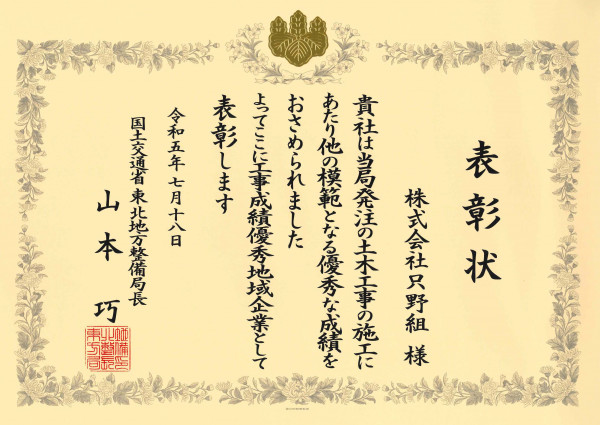 表彰状
株式会社只野組 様
貴社は当局発注の土木工事の施工に
あたり他の模範となる優秀な成績を
おさめられました
よってここに工事成績優秀地域企業として
表彰します
令和五年七月十八日
国土交通省東北地方整備局長
山本 巧